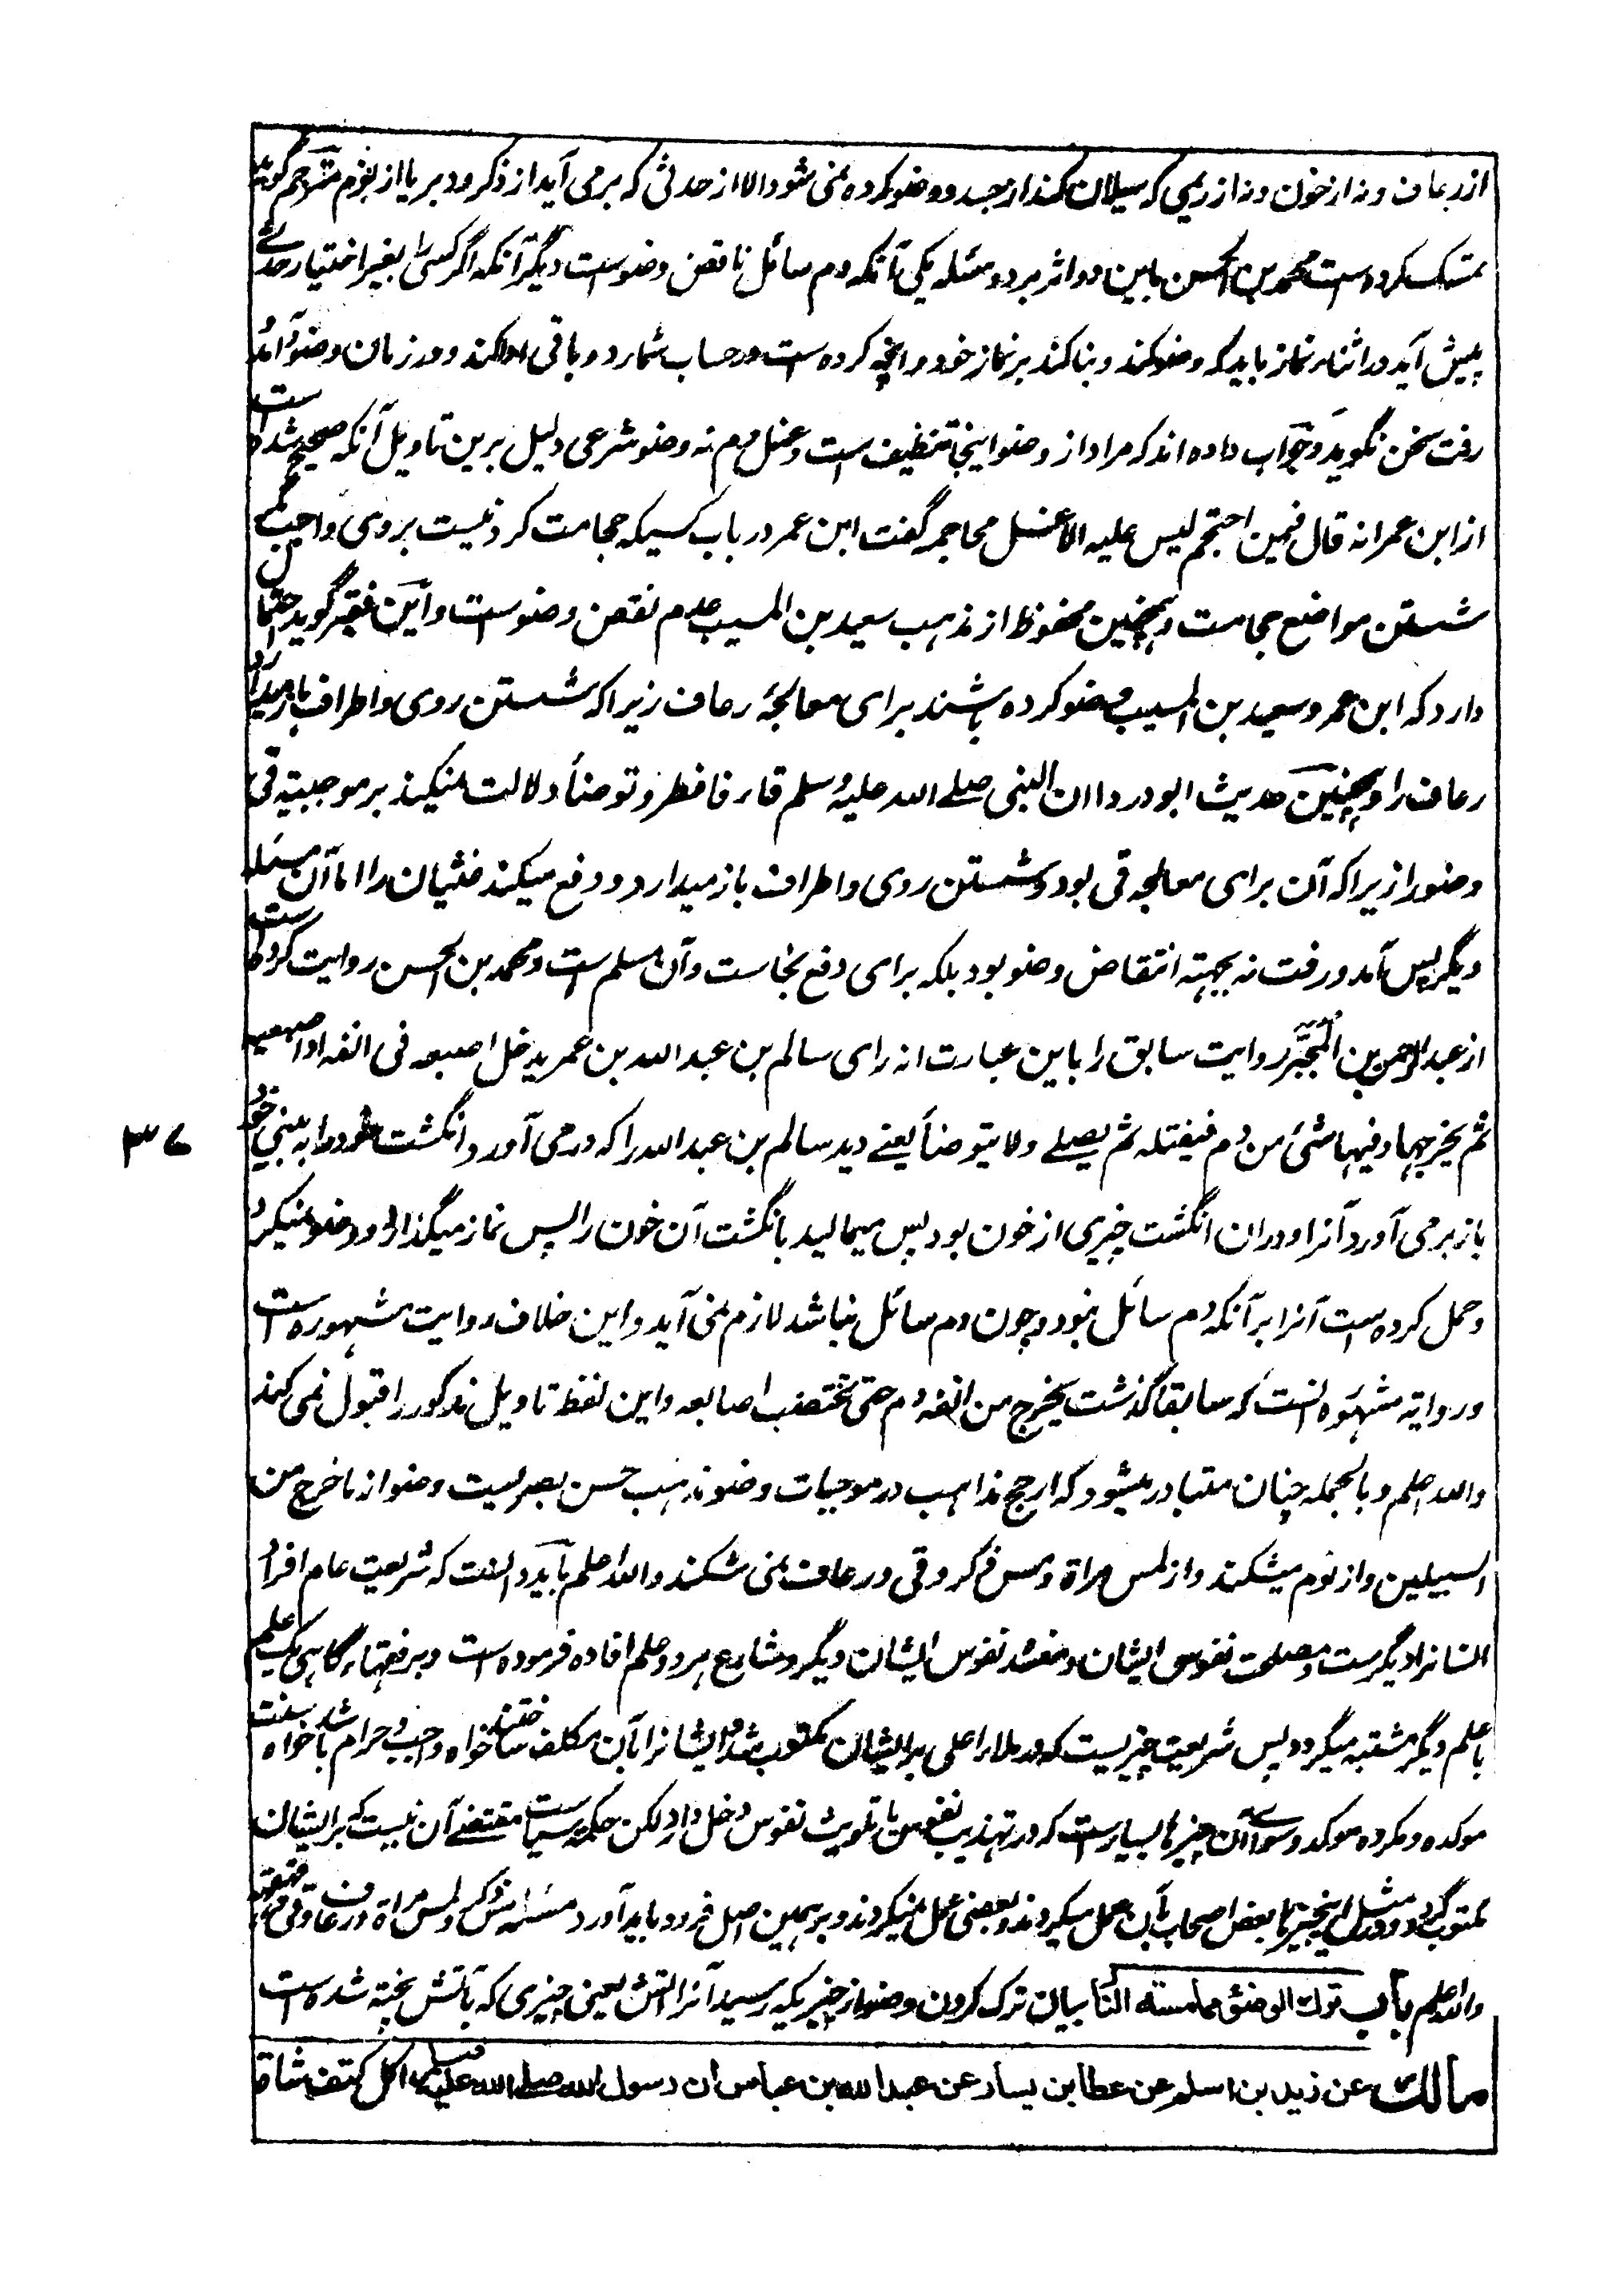 از رعاف و نه از خون و نه از ریمی که سیلان کند از جسد و وضو کرده نمی شود الا از حدثی که برمی آید از ذکر و دبر یا از نوم مترجم گوید
تمسک کرده است محمد بن الحسن باین دو اثر بر دو مسئله یکی آنکه دم سائل ناقض وضو است دیگر آنکه اگر کسی را بغیر اختیار حدثے
پیش آید در اثناء نماز باید که وضو کند و بنا کند بر نماز خود و آنچه کرده است در حساب شمارد و باقی ادا کند و در زمان وضو و آمد
رفت سخن نگوید و جواب داده اند که مراد از وضو اینجا تنظیف است و غسل دم نه وضو شرعی دلیل برین تاویل آنکه صحیح شده است
از ابن عمر انه قال فیمن احتجم لیس علیه الا غسل محاجمه گفت ابن عمر در باب کسیکه حجامت کرد نیست بروی واجب مگر
شستن مواضع حجامت و همچنین محفوظ از مذهب سعید بن المسیب عدم نقض وضو است و این فقیر گوید احتمال
دارد که ابن عمر و سعید بن المسیب وضو کرده باشند برای معالجۀ رعاف زیرا که شستن روی و اطراف باز میدارد
رعاف را و همچنین حدیث ابو درداء ان النبی صلے الله علیه وسلم قاء فافطر و توضأ دلالت نمیکند بر موجبیته قی
وضو را زیرا که آن برای معالجه قی بود و شستن روی و اطراف باز میدارد و دفع میکند غثیان را اما آن مسئله
دیگر پس آمد و رفت نه بجهته انتقاض وضو بود بلکه برای دفع نجاست و آن مسلم است و محمد بن الحسن روایت کرده است
از عبد الرحمن بن المجبّر روایت سابق را باین عبارت انه رای سالم بن عبد الله بن عمر یدخل اصبعه فی انفه او اصبعیه
ثم یخرجها و فیها شئ من دم فیفتله ثم یصلے ولا یتوضأ یعنے دید سالم بن عبد الله را که درمی آورد انگشت خود را به بینی خود
باز برمی آورد آنرا و دران انگشت چیزی از خون بود پس میمالید بانگشت آن خون را پس نماز میگذارد و وضو نمیکرد
و حمل کرده است آنرا بر آنکه دم سائل نبود و چون دم سائل نباشد لازم نمی آید و این خلاف روایت مشهوره است
و روایة مشهوره آنست که سابقا گذشت یخرج من انفه دم حتی تختضب اصابعه و این لفظ تاویل مذکور را قبول نمی کند
والله اعلم و بالجمله چنان متبادر میشود که ارجح مذاهب در موجبات وضو مذهب حسن بصریست وضو از ما خرج من
السبیلین و از نوم میشکند و از لمس مراة و مس فرج و قی و رعاف نمی شکند والله اعلم باید دانست که شریعت عام افراد
انسانرا دیگر ست و مصلحت نفوس ایشان و مفسد نفوس ایشان دیگر و شارع هر دو علم افاده فرموده است و بر فقهاء گاهی یک علم
با علم دیگر مشتبه میگردد پس شریعت چیزیست که در ملاء اعلی بر ایشان مکتوب شد و ایشانرا بآن مکلف ساختند خواه واجب و حرام باشد خواه سنت
موکده و مکروه موکد و سواے آن چیزها بسیارست که در تهذیب نفوس یا تلویث نفوس دخل دارد لکن حکمة سیاست مقتضے آن نیست که بر ایشان
مکتوب گردد و در مثل این چیزها بعض اصحاب بآن عمل میکردند و بعضی عمل نمیکردند و بر همین اصل فرود باید آورد مسئله مس ذکر و لمس مراة و رعاف و قی و قهقهه
والله اعلم باب ترك الوضوء مما مسته النار بیان ترک کردن وضو از چیزیکه رسید آنرا آتش یعنی چیزی که بآتش پخته شده است
مالك عن زید بن اسلم عن عطا بن یسار عن عبد الله بن عباس ان رسول الله صلے الله علیه وسلم اکل کتف شاة
۳۷